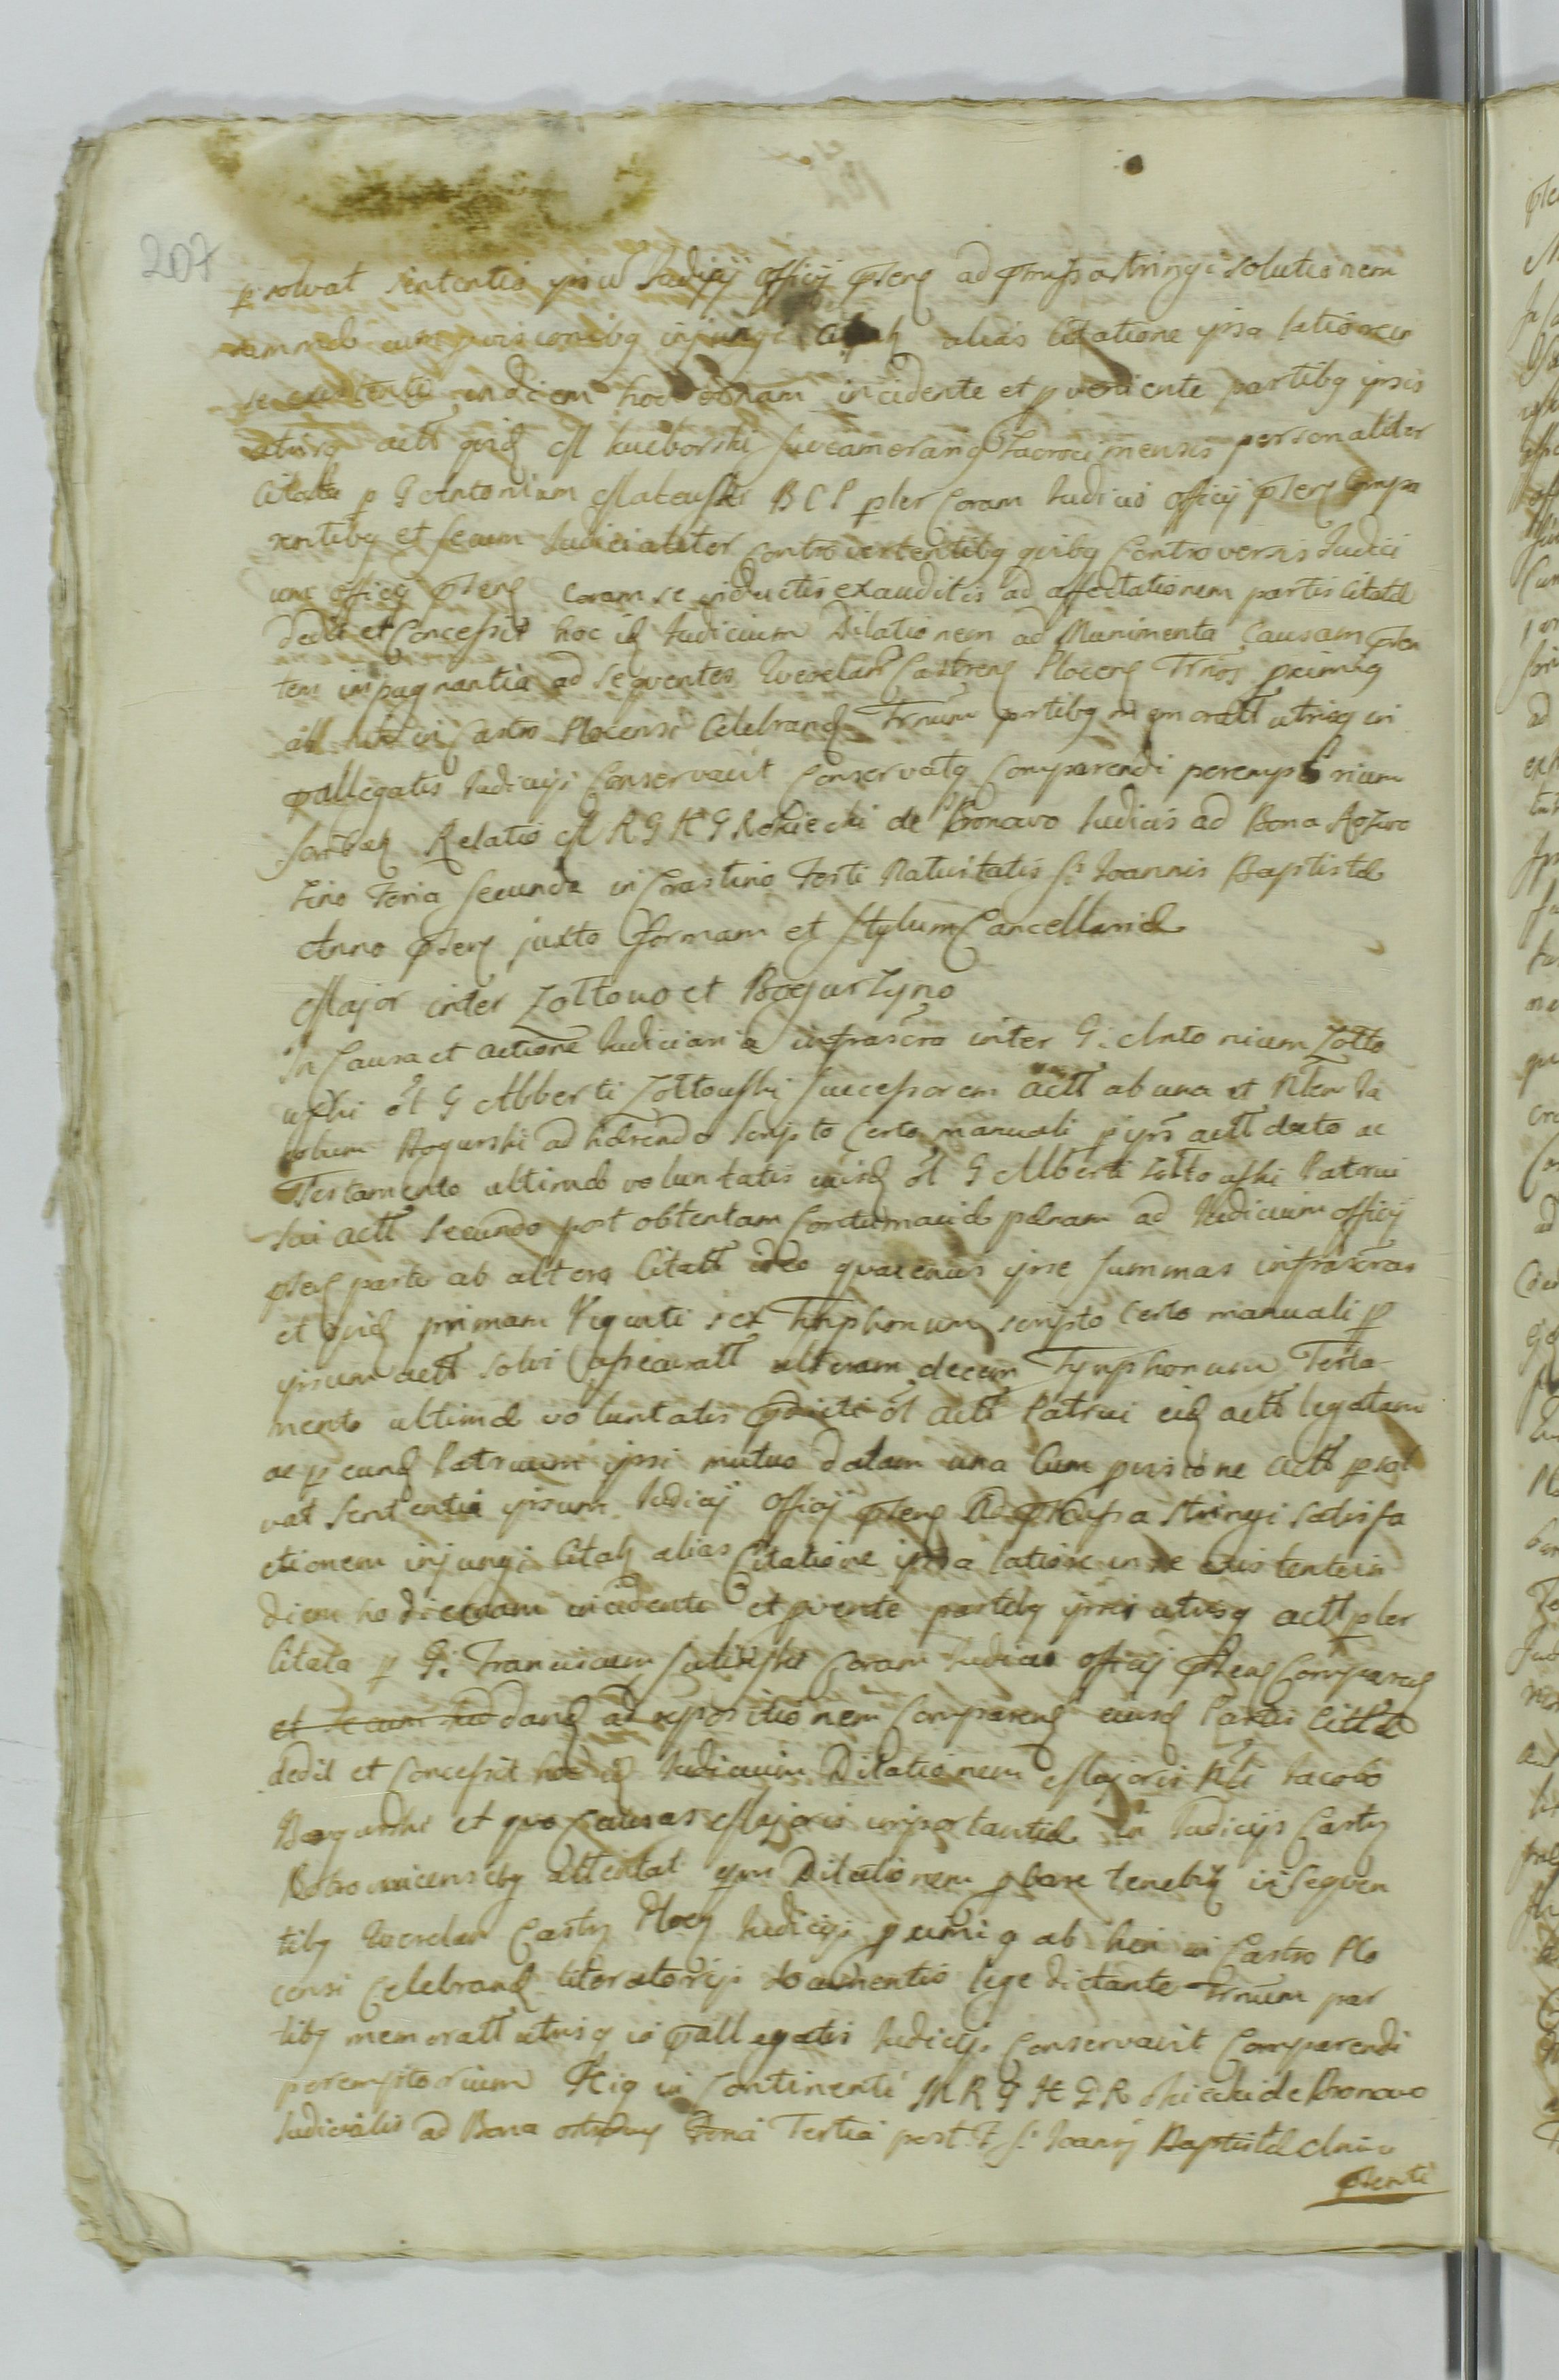 207
p solvat sententia ipsu Judicij officij pnteng ad pmissa stringi solutionem
summae cum provisionibg injungi Citatg alias Citatione ipsa latiore in
se existente in diem hodiernam incidente et pveniente partibg ipsis
utrisq actt quidg M Kucborski Succamerarig Zacrocimensis personaliter
Citata p G Antonium Mateuski B C P pter Coram Judicio officij pnteng Compa
rentibg et secum Judicialiter Controvertentibg quibg Controversis Judici
um officij pnteng coram se inductis exauditis ad affectationem partis Citatae
dedit et Concessit hoc idg Judicium Dilationem ad Munimenta Causam pntem
tem impugnantia ad sequentes Querelar Castreng Ploceng Trnos primig
ab hinc in Castro Plocensi Celebrandg Trnum prtibg memoratt utrisq in
pallegatis Judicijs Conservavit Conservatq Comparendi peremptorium
Relatio M R G H G Rokicki de Bronowo Judicis ad Bona
Feria Secunda in Crastino Festi Nativitatis S. Joannis Baptistae
Anno pnteng juxta Formam et Stylum Cancellariae
Major inter Zottowo et Bogurzyno
In Causa et actione Judiciaria infrascra inter G. Antonium Zotto
wski ol G Alberti Zottowski Successorem actt ab una et Nlem Ja
cobum Bogurski adhaerendo scripto Certo manuali p ipsg actt dato ac
Testamento ultimae voluntatis eiusdg ol G Alberti Zottowski Patrui
sui actt secundo post obtentam Contumaciae paenam ad Judicium officij
pnteng parte ab altera Citatt ideo quatenus ipse summas infrascras
et quidg primam Viginti sex Tynphonum scripto Certo manuali p
ipsum actt solvi assecuratt alteram decem Tynphonum Testa-
mento ultimae voluntatis pdicti ol actt Patrui eidg actt legatam
ac p eundg Patruum ipsi mutuo datam una Cum provisione actt psol
vat sententia ipsum Judicij officij pnteng ad pmissa stringi satisfa
ctionem injungi Citatg alias Citatione ipsa latiore in se existente in
diem hodiernam incidente et pvente partibg ipsis utrisq actt pter
Citata p G. Franciscum Coram Judicio officij pnteng Compareng
et secum Jud dandg ad repositionem Compareng eiusdg Partis Cittae
dedit et Concessit hoc idg Judicium Dilationem Majoris Nli Jacobo
Bogurski et quo Causas Majoris importantiae in Judicijs Castrg
attentat qm Dilationem pbare tenebitg in sequen
tibg Querelar Castrg Plocg Judicijs primig ab hinc in Castro Plo
censi Celebrandg literatorijs documentis lege dictante Trnum par
tibg memoratt utrisq in pallegatis Judicijs Conservavit Comparendi
peremptorium Hig in Continenti M R G H G Rokicki de Bronowo
Judicialis ad Bona Feria Tertia post F S. Joanng Baptistae Anno
pnti